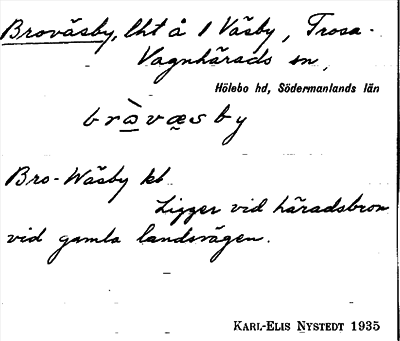 Broväsby, lht å 1 Väsby, Trosa-
Vagnhärads sn,
Hölebo hd, Södermanlands län
brò̱væ̱sby
Bro-Wäsby kb
Ligger vid häradsbron
vid gamla landsvägen.
KARL-ELIS NYSTEDT 1935